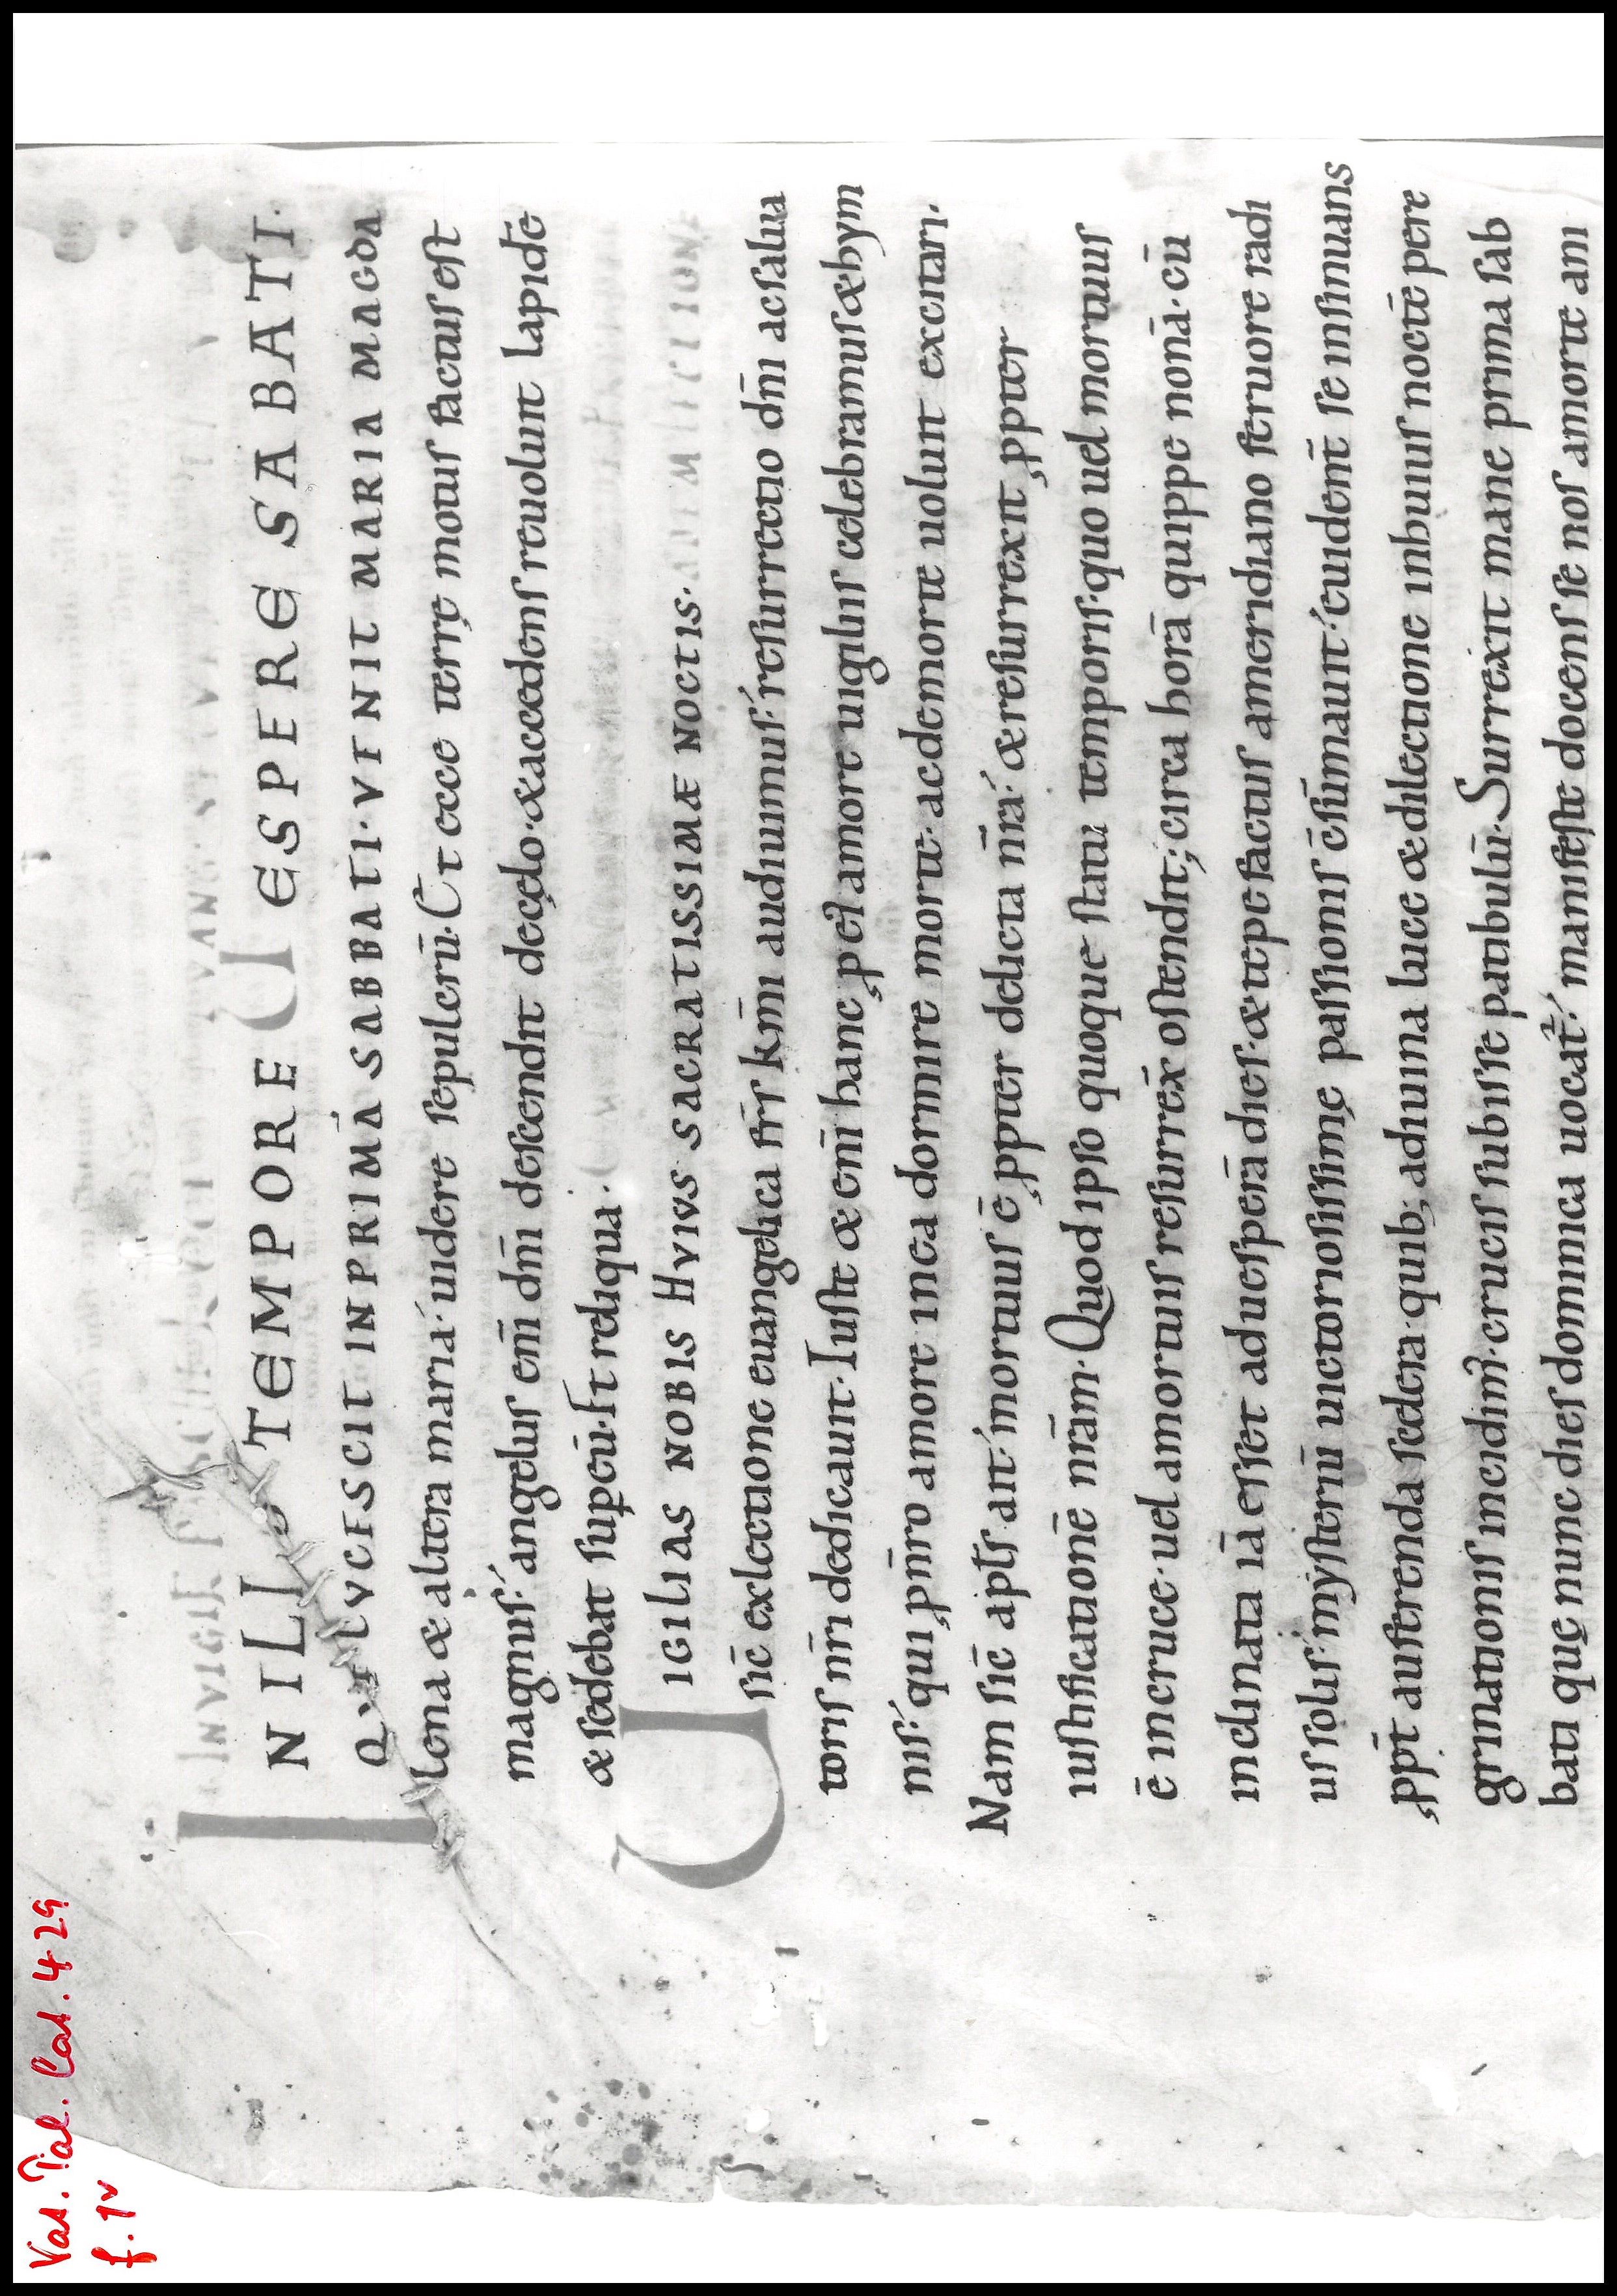 Vat. Pal. Lat. 429
f. 1v
IN ILLO TEMPORE VESPERE SABATI·
QVĘ LVCESCIT IN PRIMÁ SABBATI· VENIT MARIA MAGDA
lena & altera maria· uidere sepulcrū· Et ecce terrę motus factus est
magnus· angelus eni̅ dn̅i descendit de cęlo· & accedens reuoluit lapidē
& sedebat sup eū· Et reliqua·
VIGILIAS NOBIS HVIVS SACRATISSIMÆ NOCTIS·
sic̅ ex lectione euangelica fr̅s km̅i audiuimus· resurrectio dn̅i ac salua
toris nr̅i dedicauit· Iuste & eni̅ hanc p ei amore uigiliis celebramus & hym
nis· qui p nr̅o amore in ea dormire morte· ac de morte uoluit excitari·
Nam sic̅ apt̅s ait· mortuus ē ppter delicta nr̅a· & resurrexit ppter
iustificationē nr̅am· Quod ipso quoque statu temporis· quo uel mortuus
ē in cruce· uel a mortuis resurrex̅ ostendit; circa horā quippe nonā· cū
inclinata iā esset ad uesperā dies· & tepefactus a meridiano feruore radi
us solis· mysteriū uictoriosissimę passionis c̅su̅mauit· euident̅ se insinuans
ppt̅ auferenda scelera· quib; a diuina luce & dilectione inbuius nocte̅ pere
grinationis incidim̉· crucis subisse patibulū· Surrexit mane prima sab
bati quę nunc dies dominica uocat̉· manifeste docens se nos a morte am